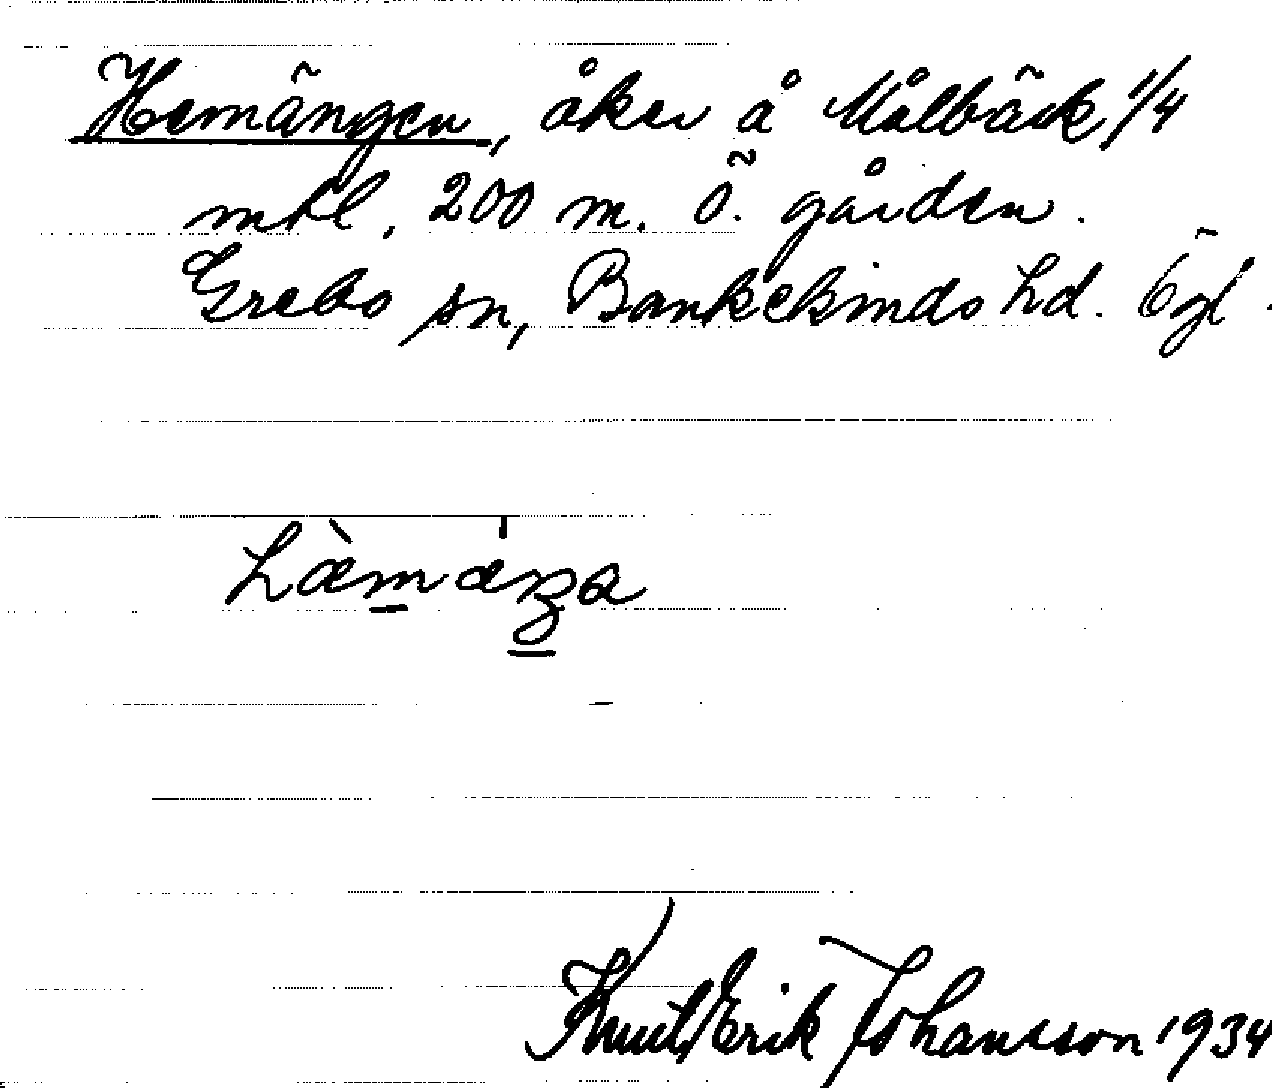 Hemängen, åker å Målbäck 1/4
mtl, 200 m. Ö. gården.
Grebo sn, Bankekinds hd. Ögl.
Knut Erik Johansson 1934